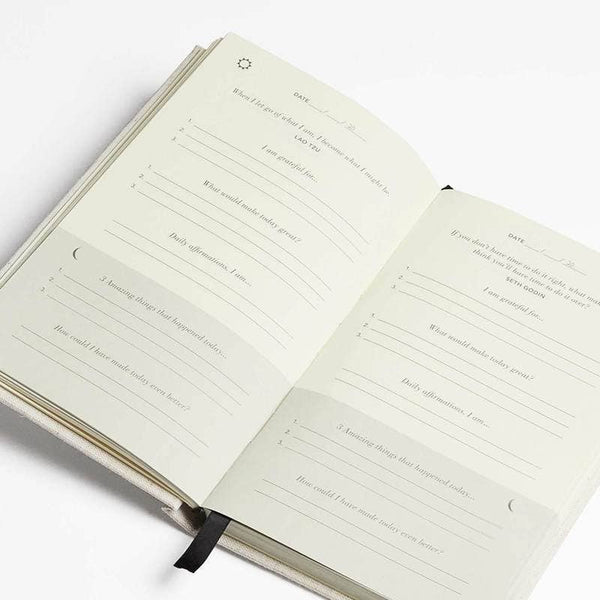 DATE / / 20
When I let go of what I am, I become what I might be.
LAO TZU
I am grateful for...
1.
2.
3.
What would make today great?
1.
2.
3.
Daily affirmations, I am...
3 Amazing things that happened today...
1.
2.
3.
How could I have made today even better?
DATE / / 20
If you don't have time to do it right, what
think you'll have time to do it over?
SETH GODIN
I am grateful for...
1.
2.
3.
What would make today great?
1.
2.
3.
Daily affirmations, I am...
3 Amazing things that happened today...
1.
2.
3.
How could I have made today even better?